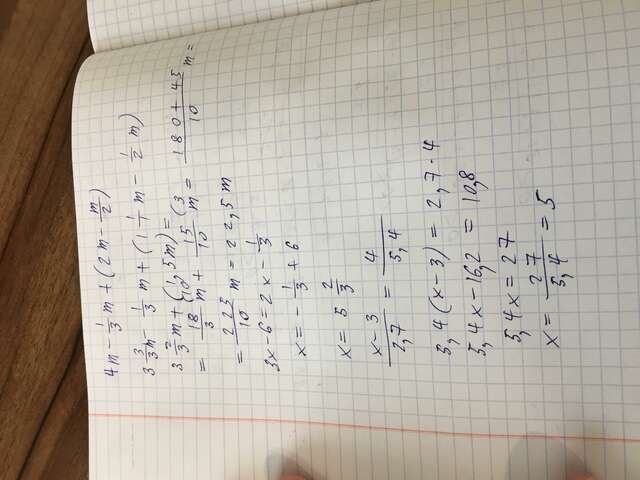 4m - 1/3 m + (2m - m/2)
3 3/3 m - 1/3 m + (1 1/1 m - 1/2 m)
3 2/3 m + (1,5m) =
= 18/3 m + 15/10 m = 180+45/10 m =
= 225/10 m = 22,5m
3x - 6 = 2x - 1/3
x = - 1/3 + 6
x = 5 2/3
x-3/2,7 = 4/5,4
5,4(x-3) = 2,7·4
5,4x - 16,2 = 10,8
5,4x = 27
x = 27/5,4 = 5